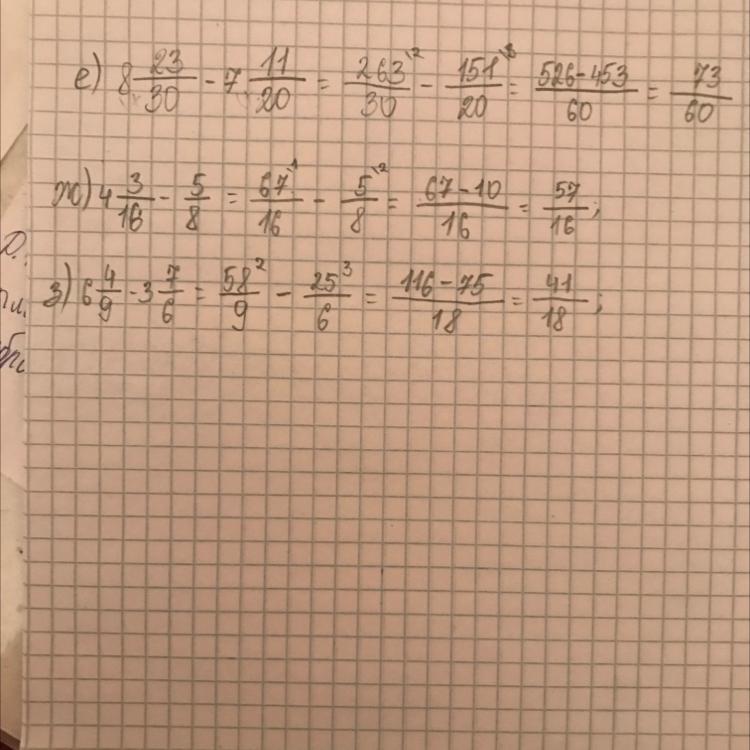 е) 8 23/30 - 7 11/20 = 263\2/30 - 151\3/20 = 526-453/60 = 73/60
ж) 4 3/16 - 5/8 = 67\1/16 - 5\2/8 = 67-10/16 = 57/16;
з) 6 4/9 - 3 7/6 = 58 2/9 - 25 3/6 = 116-75/18 = 41/18;